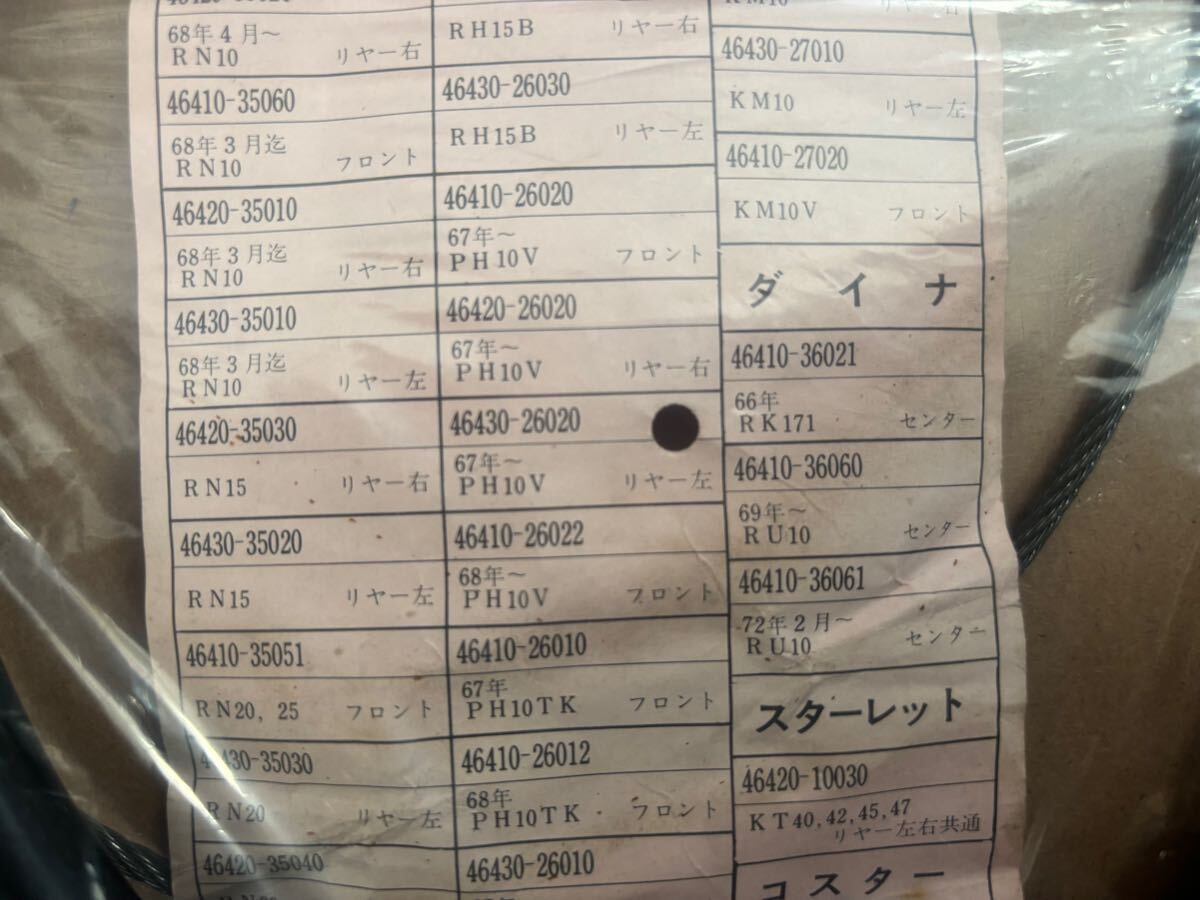 68年4月～
RN10 リヤー右
46410-35060
68年3月迄
RN10 フロント
46420-35010
68年3月迄
RN10 リヤー右
46430-35010
68年3月迄
RN10 リヤー左
46420-35030
RN15 リヤー右
46430-35020
RN15 リヤー左
46410-35051
RN20, 25 フロント
46430-35030
RN20 リヤー左
46420-35040
RH15B リヤー右
46430-26030
RH15B リヤー左
46410-26020
67年～
PH10V フロント
46420-26020
67年～
PH10V リヤー右
46430-26020
67年～
PH10V リヤー左
46410-26022
68年～
PH10V フロント
46410-26010
67年
PH10TK フロント
46410-26012
68年
PH10TK フロント
46430-26010
KM10 リヤー右
46430-27010
KM10 リヤー左
46410-27020
KM10V フロント
ダイナ
46410-36021
66年
RK171 センター
46410-36060
69年～
RU10 センター
46410-36061
72年2月～
RU10 センター
スターレット
46420-10030
KT40,42,45,47
リヤー左右共通
コスター